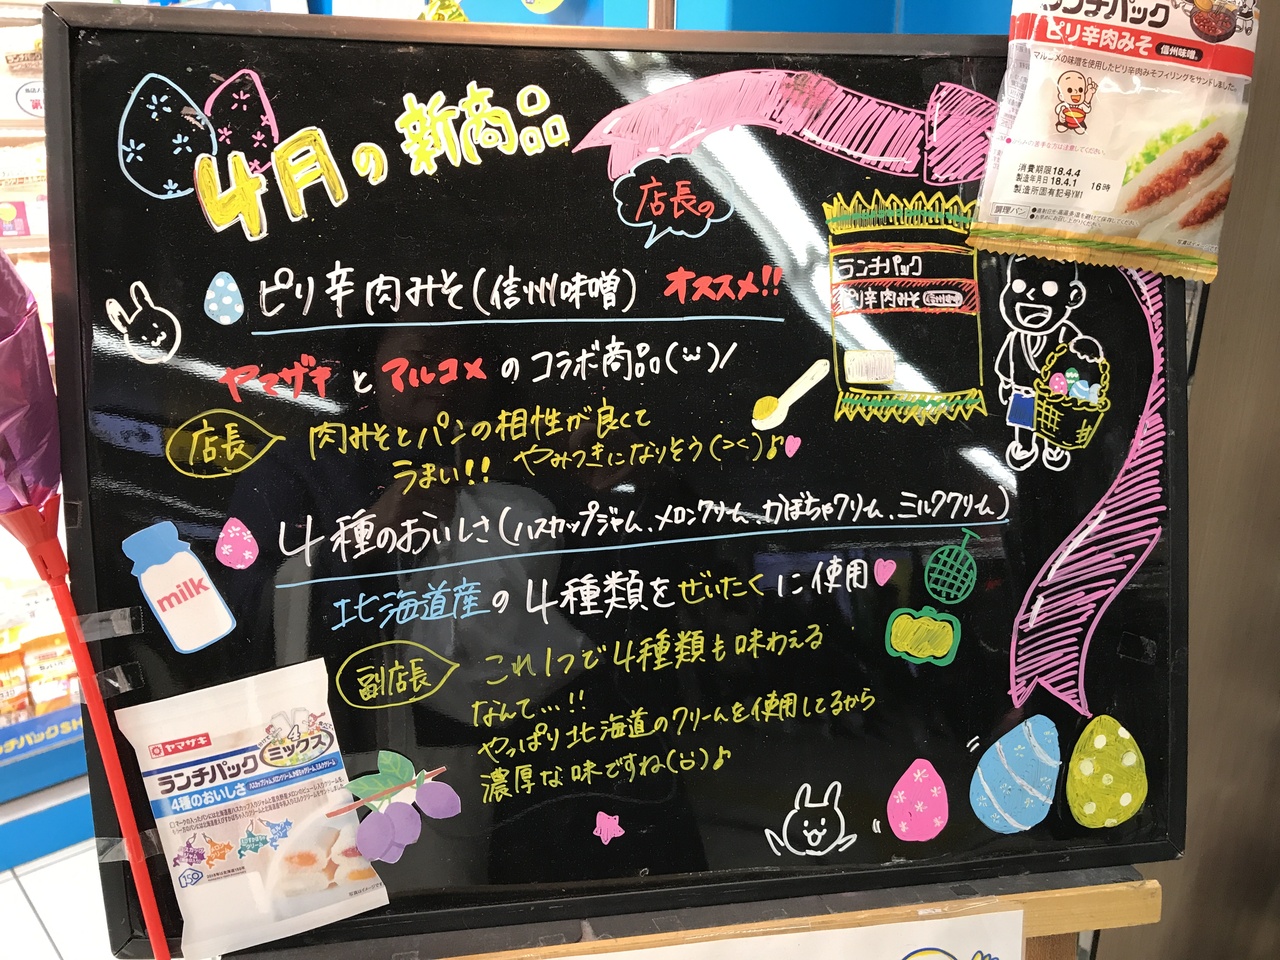 4月の新商品
店長の
ピリ辛肉みそ(信州味噌) オススメ!!
ヤマザキとマルコメのコラボ商品(･ω･)/
店長
肉みそとパンの相性が良くて
うまい!! やみつきになりそう(><)♪
4種のおいしさ(ハスカップジャム、メロンクリーム、かぼちゃクリーム、ミルククリーム)
北海道産の4種類をぜいたくに使用
副店長
これ1つで4種類も味わえる
なんて…!!
やっぱり北海道のクリームを使用してるから
濃厚な味ですね(ö)♪
milk
ランチパック
ピリ辛肉みそ
ランチパック
ピリ辛肉みそ 信州味噌
マルコメの味噌を使用したピリ辛肉みそフィリングをサンドしました。
消費期限 18.4.4
製造年月日 18.4.1 16時
製造所固有記号YM1
調理パン
ヤマザキ
ランチパック
4
ミックス
4種のおいしさ
ハスカップジャム、メロンクリーム、かぼちゃクリーム、ミルククリーム
150